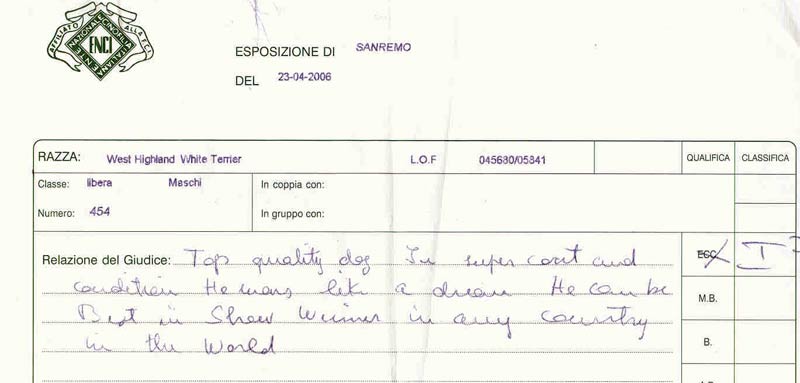 AFFILIATO ALLA F.C.I.
ENTE NAZIONALE CINOFILIA ITALIANA
ENCI
ESPOSIZIONE DI SANREMO
DEL 23-04-2006
RAZZA: West Highland White Terrier L.O.F 045680/05841 QUALIFICA CLASSIFICA
Classe: libera Maschi In coppia con:
Numero: 454 In gruppo con:
Relazione del Giudice: Top quality dog In super coat and ECC I
condition He moves like a dream He can be M.B.
Best in Show Winner in any country B.
in the World